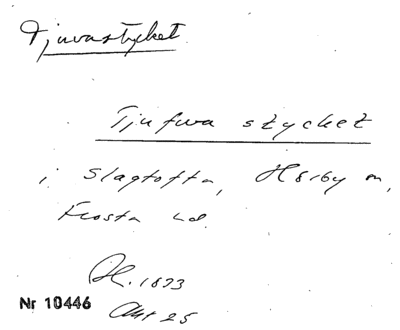 Tjuvastycket
Tjufwa stycket
i Slagtofta, Hörby sn,
Frosta hd.
Ak. 1823
Akt 25
Nr 10446